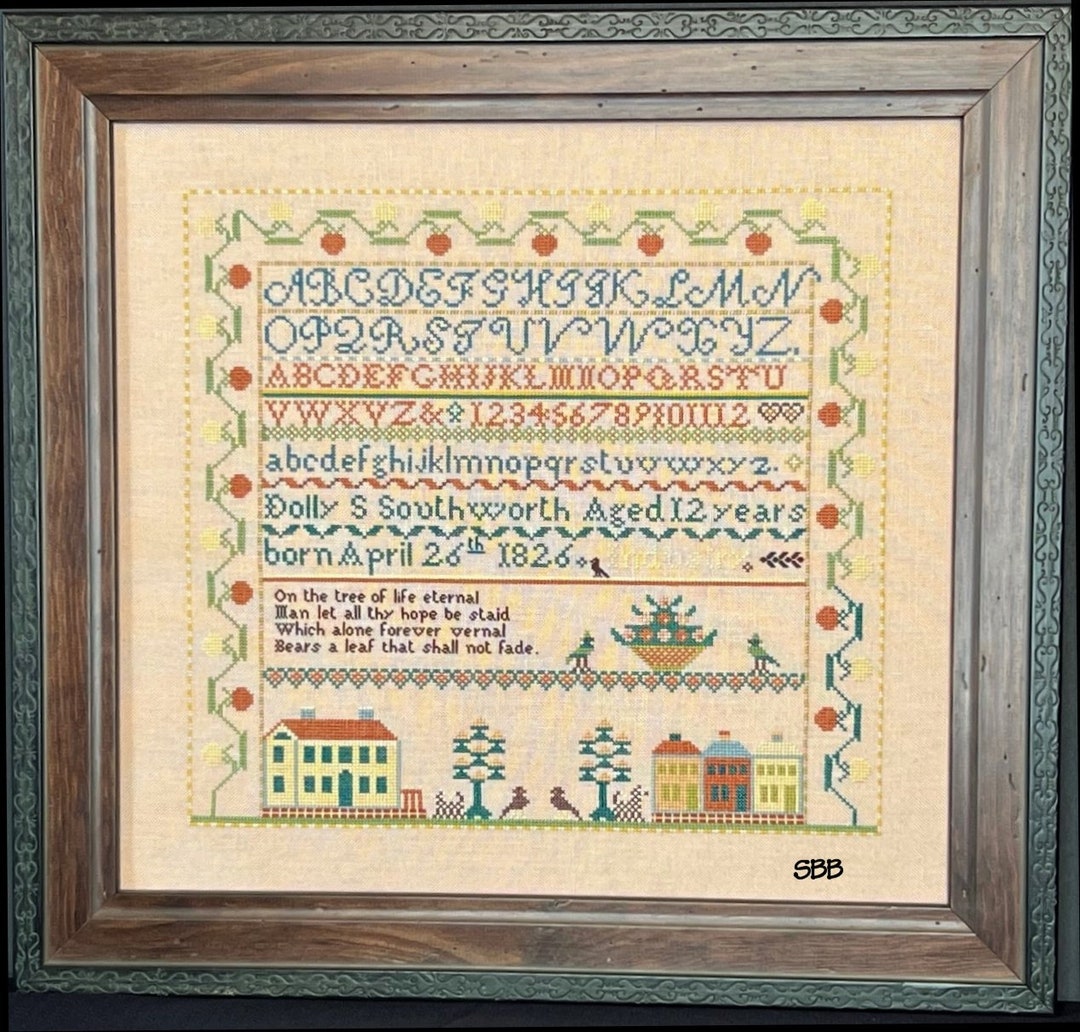 ABCDEFGHIJKLMN
OPQRSTUVWXYZ.
ABCDEFGHIJKLMNOPQRSTU
VWXYZ& 123456789101112
abcdefghijklmnopqrstuvwxyz.
Dolly S Southworth Aged 12 years
born April 26th 1826
On the tree of life eternal
Man let all thy hope be staid
Which alone forever vernal
Bears a leaf that shall not fade.
SBB